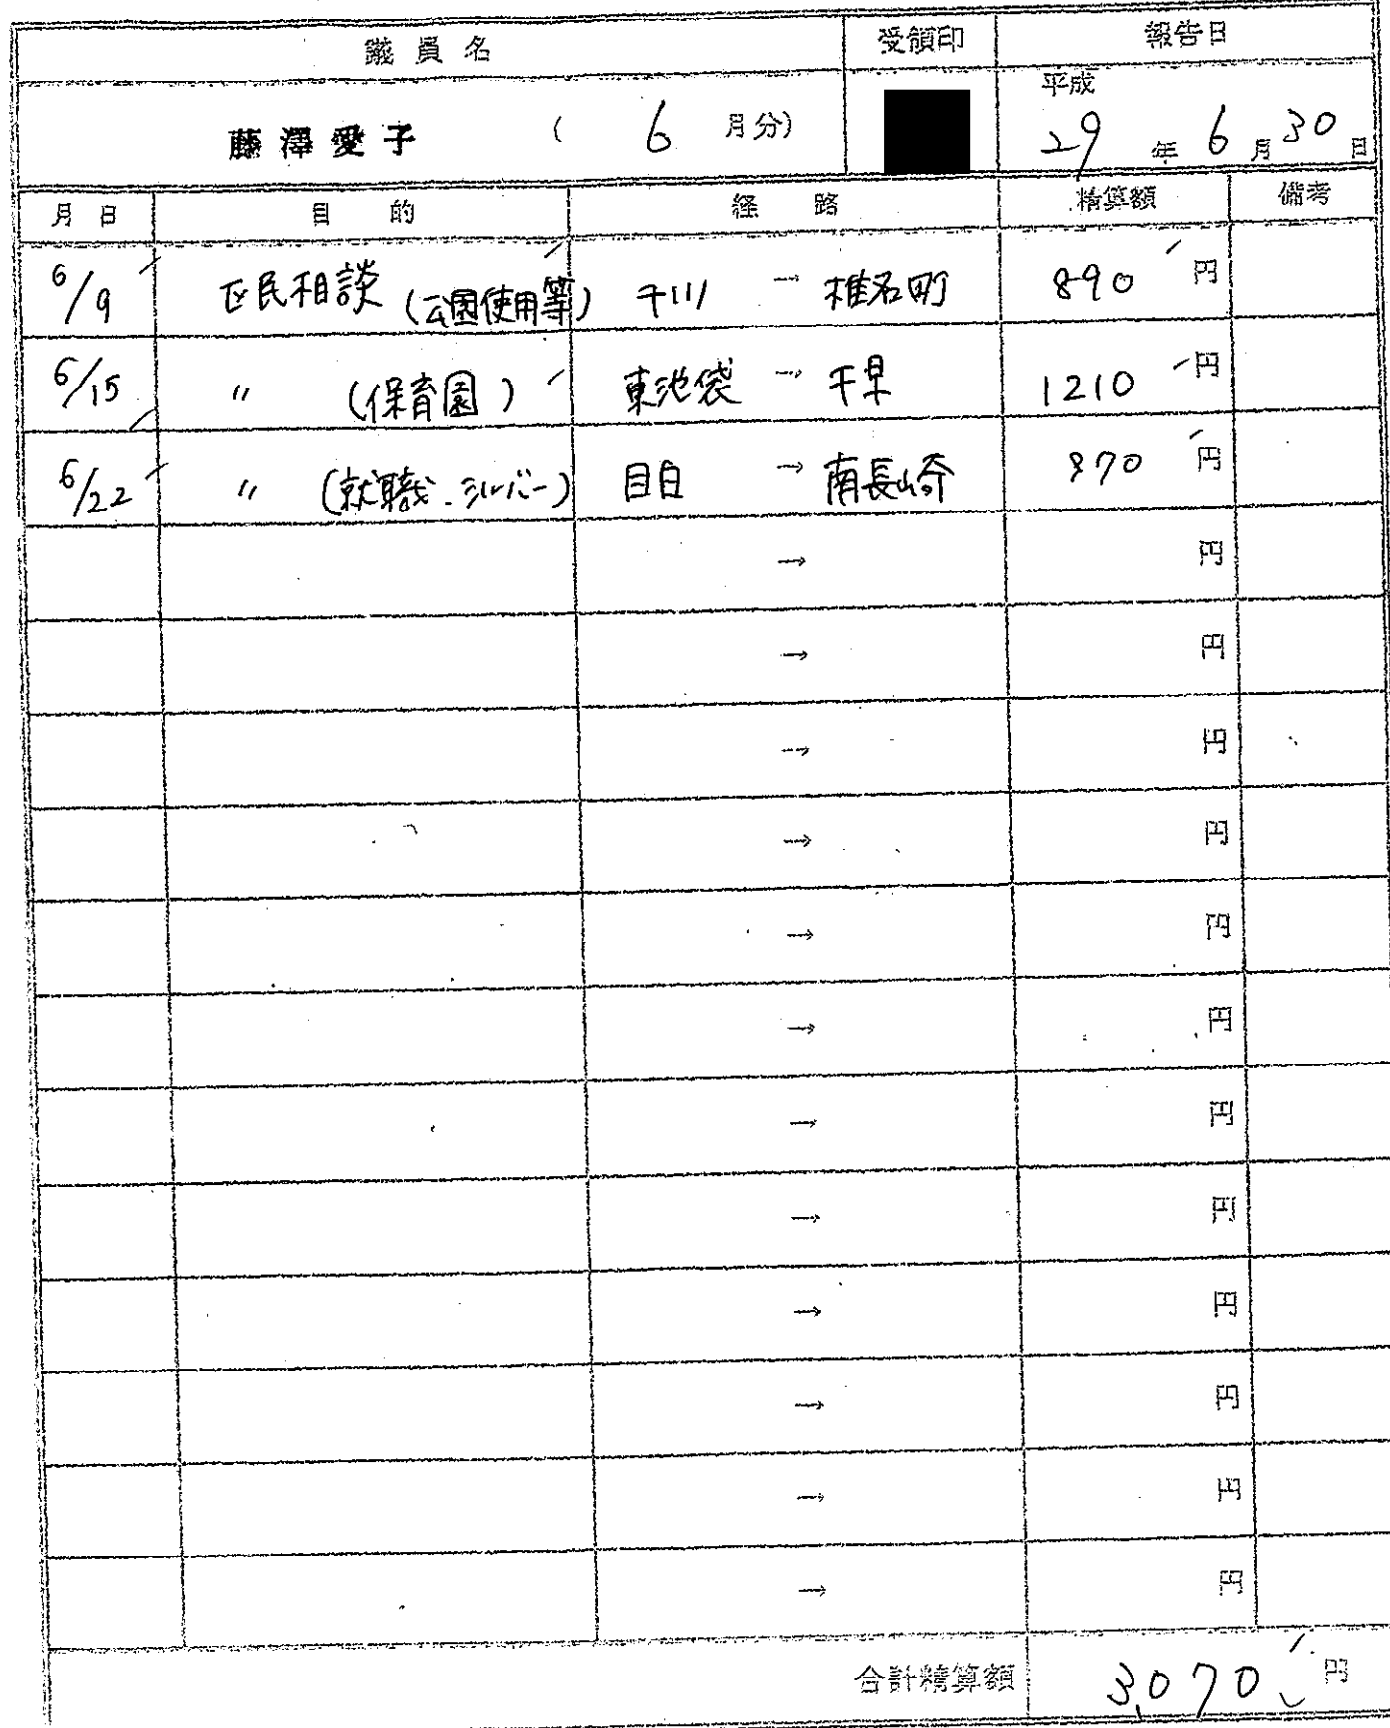 議員名 受領印 報告日
藤澤愛子 ( 6 月分) 平成 29 年 6 月 30 日
月日 目的 経路 精算額 備考
6/9 区民相談 (公園使用等) 千川 → 椎名町 890 円
6/15 〃 (保育園) 東池袋 → 千早 1210 円
6/22 〃 (就職・シルバー) 目白 → 南長崎 970 円
→ 円
→ 円
→ 円
→ 円
→ 円
→ 円
→ 円
→ 円
→ 円
→ 円
→ 円
→ 円
合計精算額 3,070 円